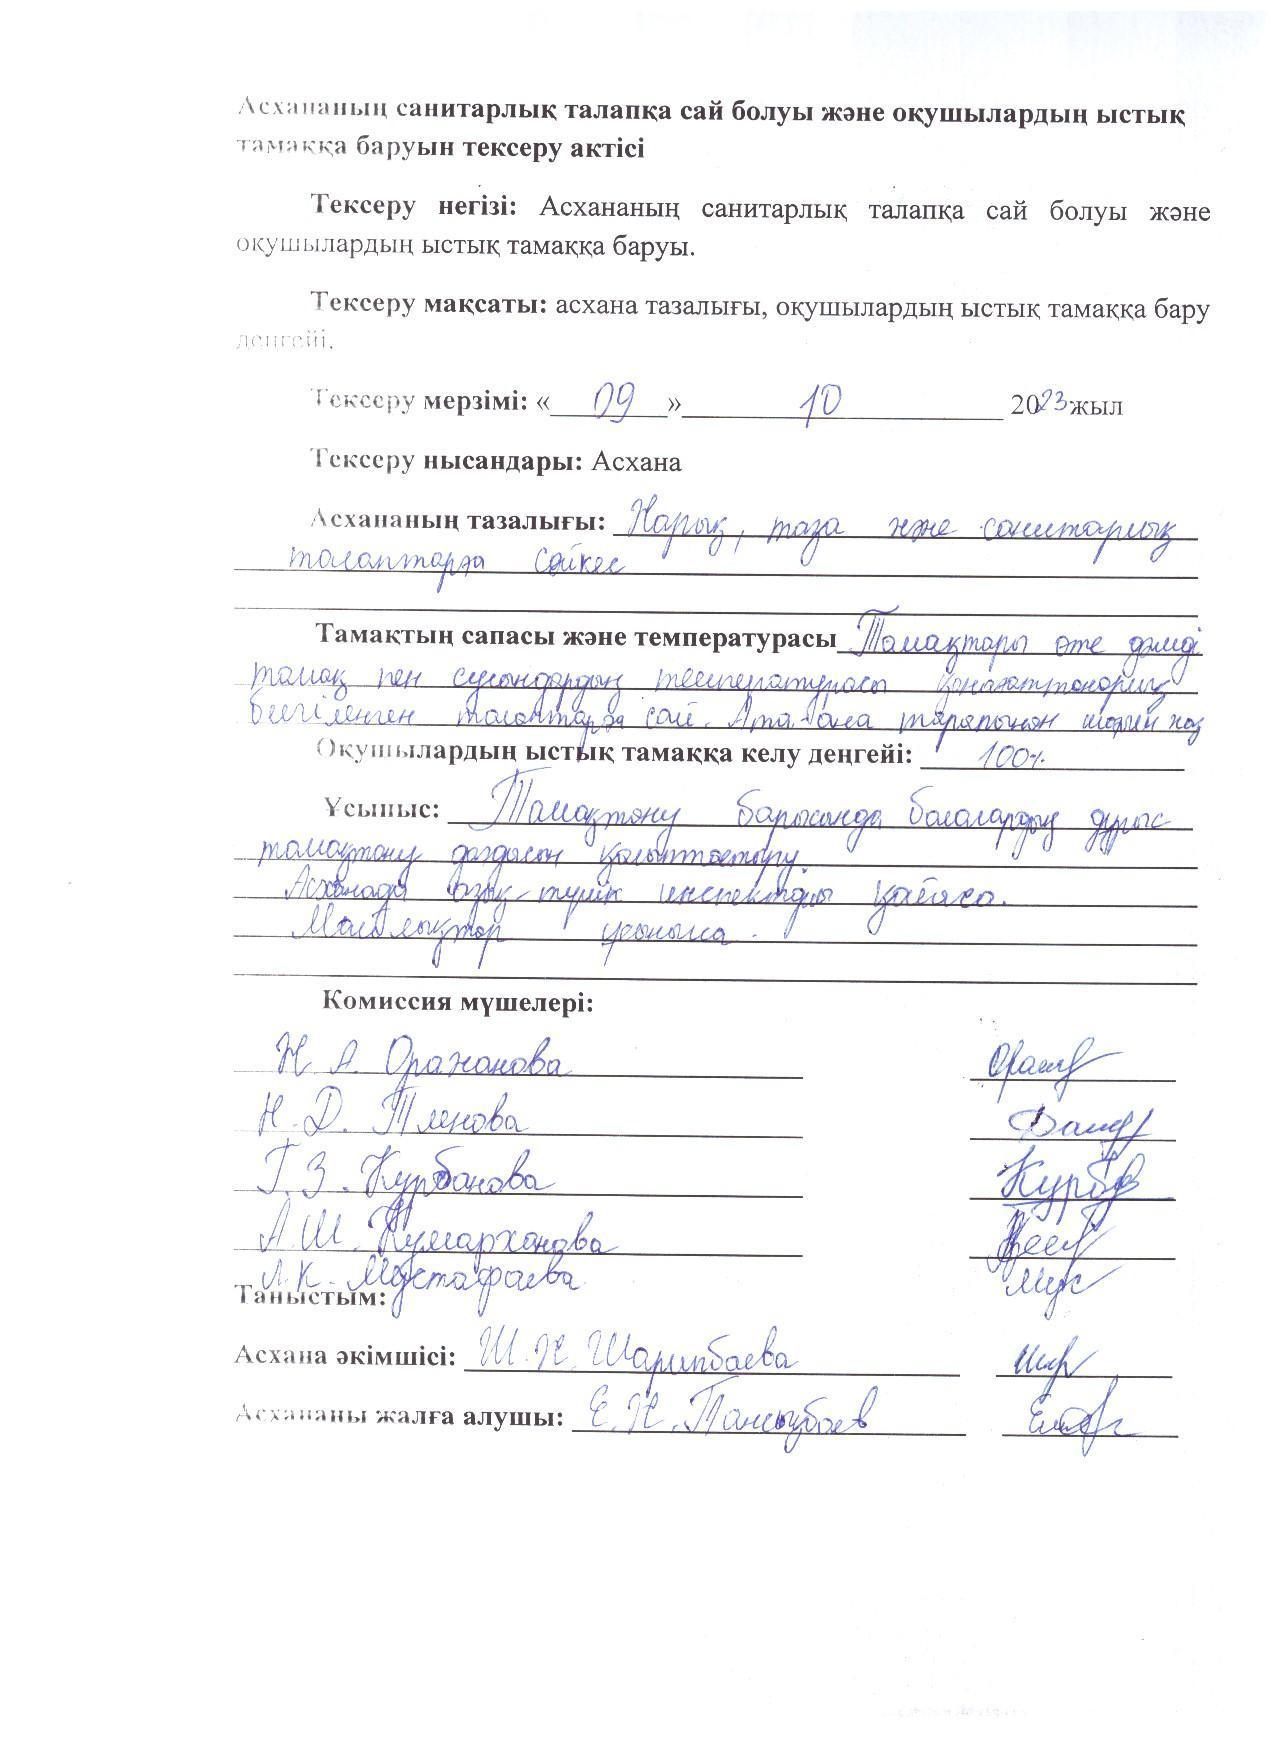 Асхананың санитарлық талапқа сай болуы және оқушылардың ыстық
тамаққа баруын тексеру актісі
Тексеру негізі: Асхананың санитарлық талапқа сай болуы және
оқушылардың ыстық тамаққа баруы.
Тексеру мақсаты: асхана тазалығы, оқушылардың ыстық тамаққа бару
деңгейі.
Тексеру мерзімі: « 09 » 10 2023 жыл
Тексеру нысандары: Асхана
Асхананың тазалығы: Жарық, таза және санитарлық
талаптарға сәйкес
Тамақтың сапасы және температурасы Тамақтары өте дәмді
тамақ пен сусындардың температурасы қанағаттанарлық
белгіленген талаптарға сай. Ата-ана тарапынан
Оқушылардың ыстық тамаққа келу деңгейі: 100%
Ұсыныс: Тамақтану барысында балалардың дұрыс
тамақтану дағдысын қалыптастыру
Асханада азық-түлік
ұсыныла.
Комиссия мүшелері:
Н. А. Оражанова
Н. Д. Тленова
Г. З. Курбанова
А. Ш. Кумарханова
Л. К. Мустафаева
Таныстым:
Асхана әкімшісі: Ш. К. Шарипбаева
Асхананы жалға алушы: Е. К. Тансықбаев